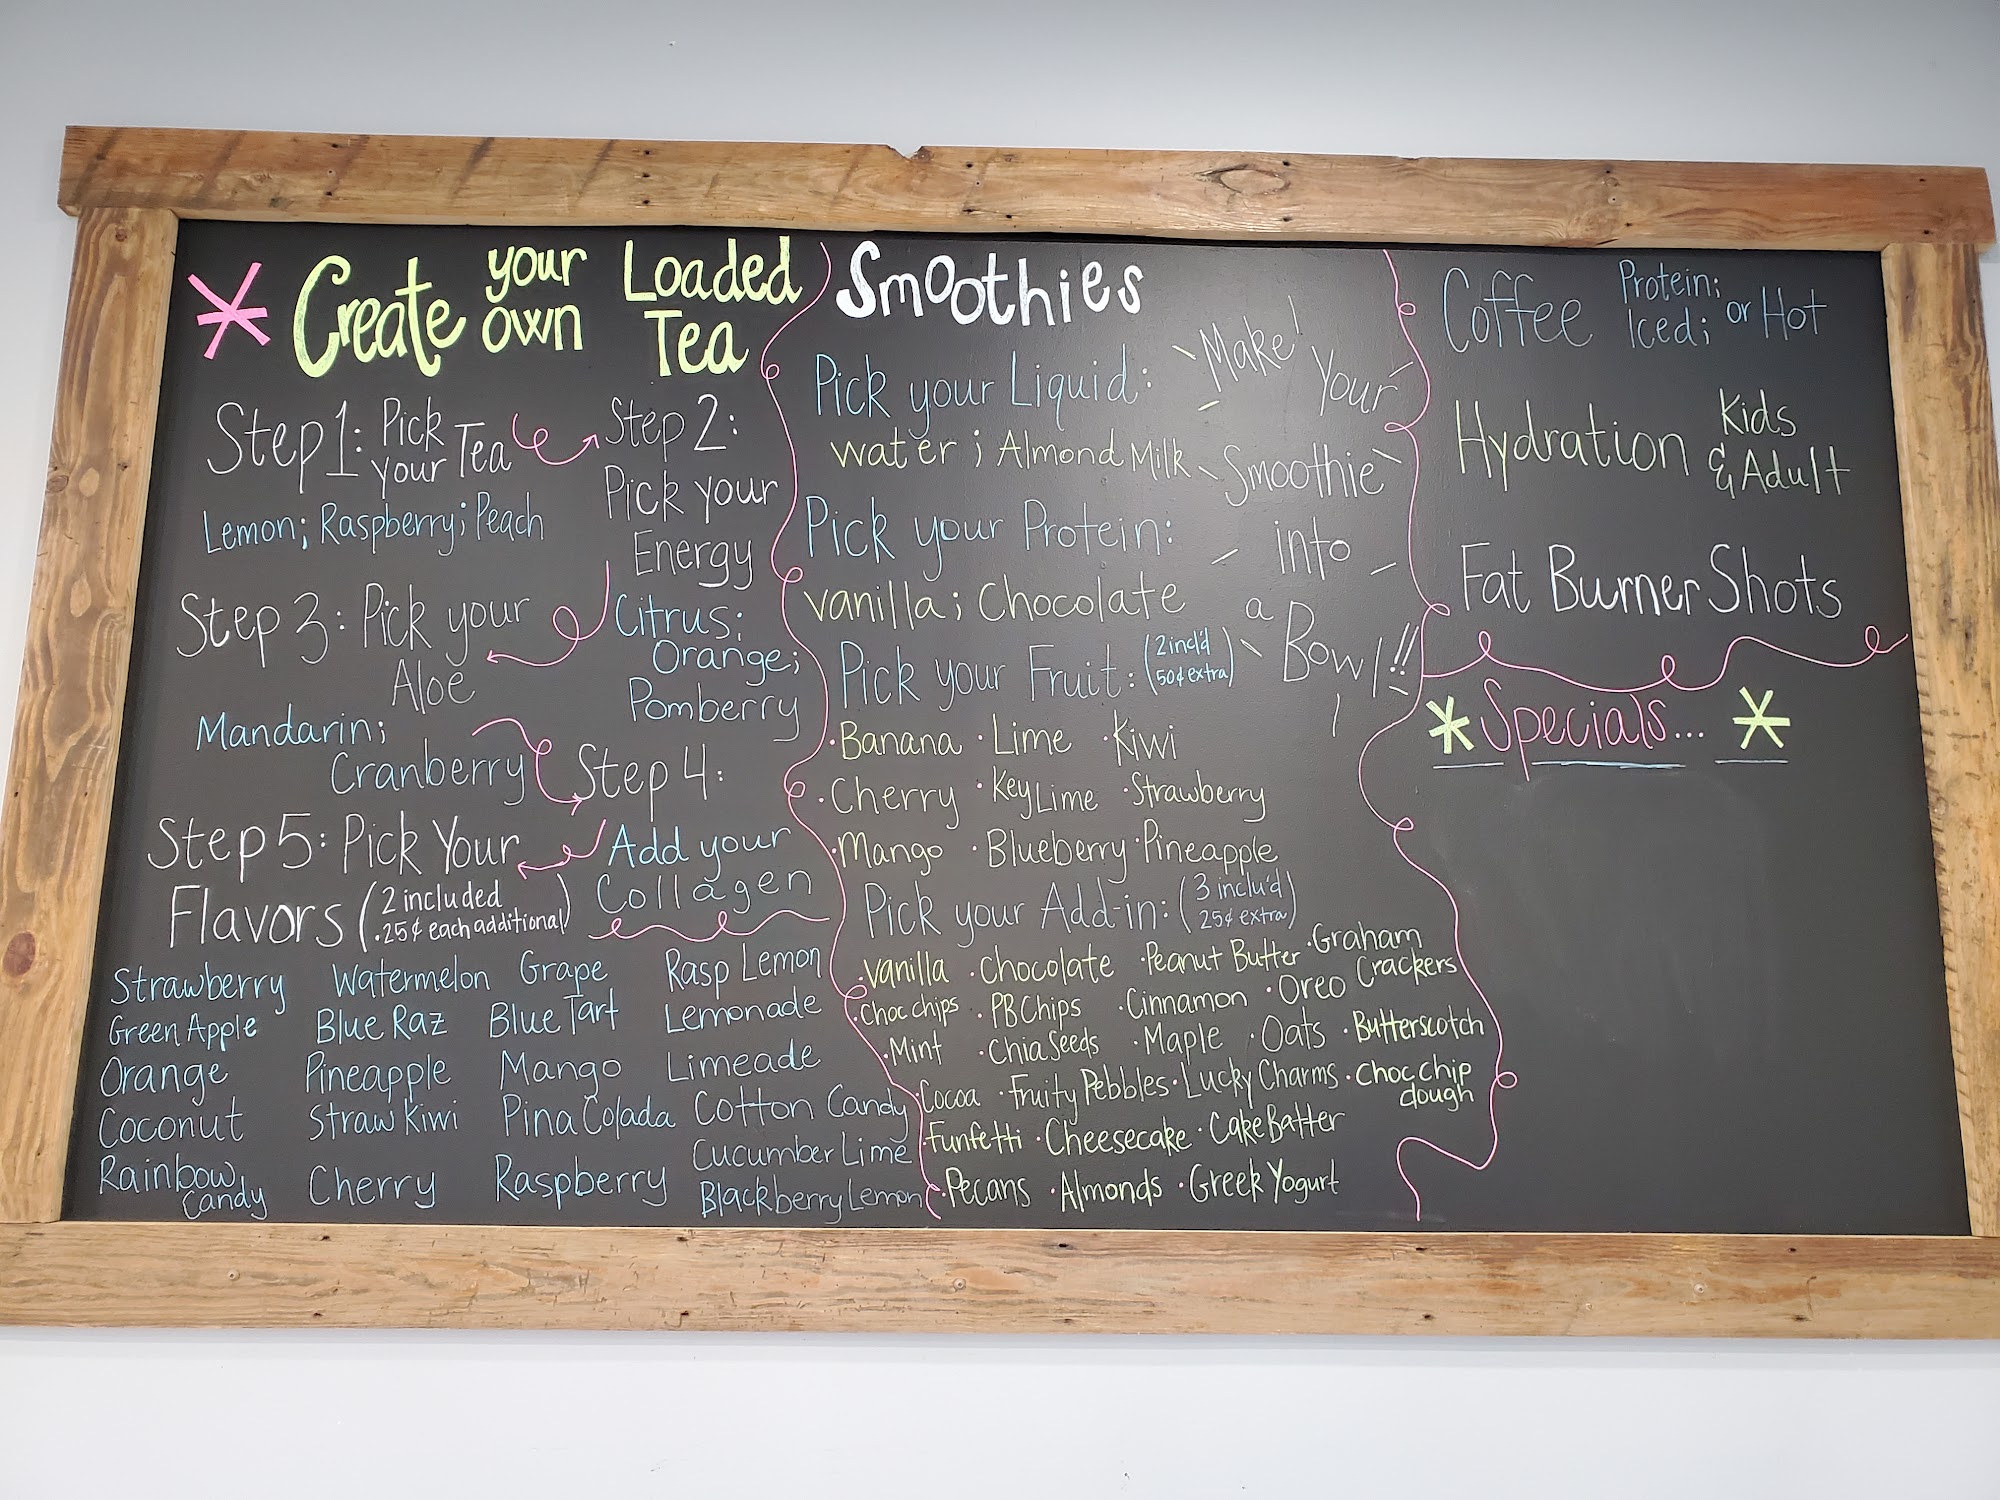 * Create your own Loaded Tea
Step 1: Pick your Tea
Lemon; Raspberry; Peach
Step 2:
Pick your
Energy
Citrus;
Orange;
Pomberry
Step 3: Pick your
Aloe
Mandarin;
Cranberry
Step 4:
Add your
Collagen
Step 5: Pick Your
Flavors (2 included
.25¢ each additional)
Strawberry Watermelon Grape Rasp Lemon
Green Apple Blue Raz Blue Tart Lemonade
Orange Pineapple Mango Limeade
Coconut Straw Kiwi Pina Colada Cotton Candy
Cucumber Lime
Rainbow Candy Cherry Raspberry Blackberry Lemon
Smoothies
Pick your Liquid:
water; Almond Milk
Pick your Protein:
vanilla; Chocolate
Pick your Fruit: (2 incl'd
50¢ extra)
·Banana ·Lime ·Kiwi
·Cherry ·Key Lime ·Strawberry
·Mango ·Blueberry ·Pineapple
Pick your Add-in: (3 inclu'd
25¢ extra)
·Vanilla ·Chocolate ·Peanut Butter ·Graham Crackers
·Choc chips ·PB Chips ·Cinnamon ·Oreo
·Mint ·Chia Seeds ·Maple ·Oats ·Butterscotch
·Cocoa ·Fruity Pebbles ·Lucky Charms ·Choc chip dough
·Funfetti ·Cheesecake ·Cake Batter
·Pecans ·Almonds ·Greek Yogurt
Make
Your
Smoothie
into
a
Bowl!!
Coffee Protein;
Iced; or Hot
Hydration Kids
& Adult
Fat Burner Shots
* Specials... *